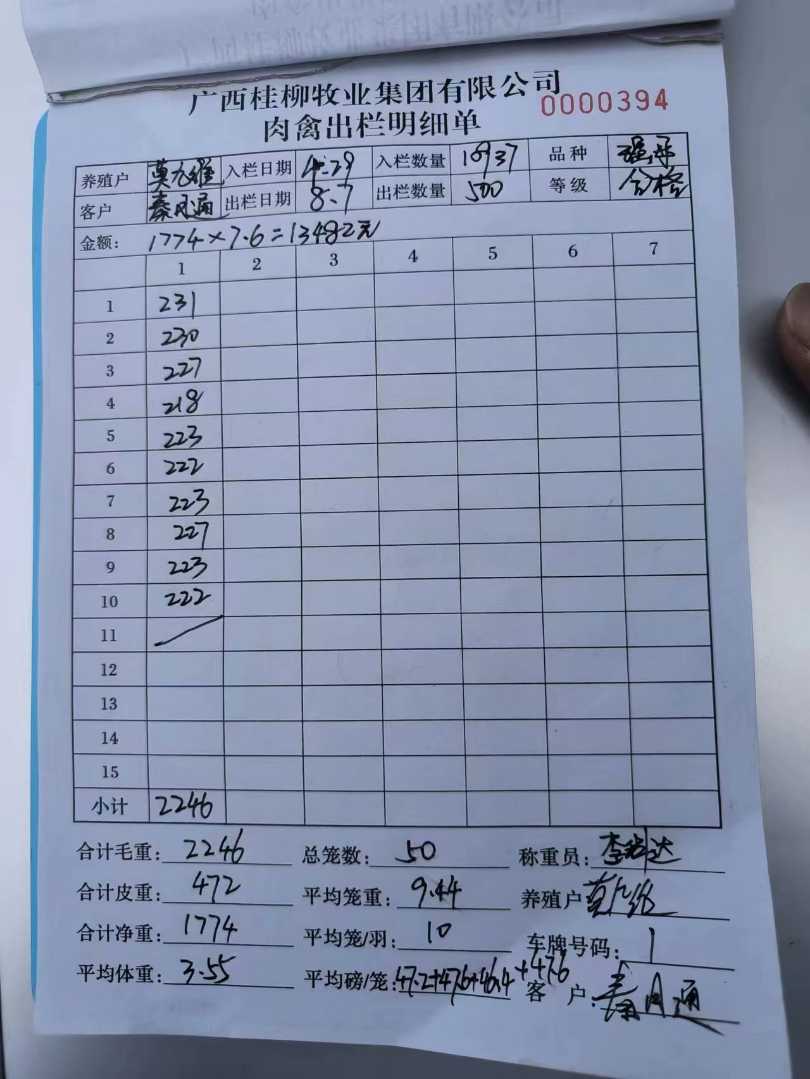 广西桂柳牧业集团有限公司
0000394
肉禽出栏明细单
养殖户 入栏日期 4.29 入栏数量 10937 品种
客户 秦月通 出栏日期 8.7 出栏数量 500 等级 合格
金额: 1774×7.6=13482元
1 2 3 4 5 6 7
1 231
2 230
3 227
4 218
5 223
6 222
7 223
8 227
9 223
10 222
11
12
13
14
15
小计 2246
合计毛重: 2246 总笼数: 50 称重员:
合计皮重: 472 平均笼重: 9.44 养殖户
合计净重: 1774 平均笼/羽: 10 车牌号码: 1
平均体重: 3.55 平均磅/笼: 47.2+47.6+46.4+47.6 客 户: 秦月通